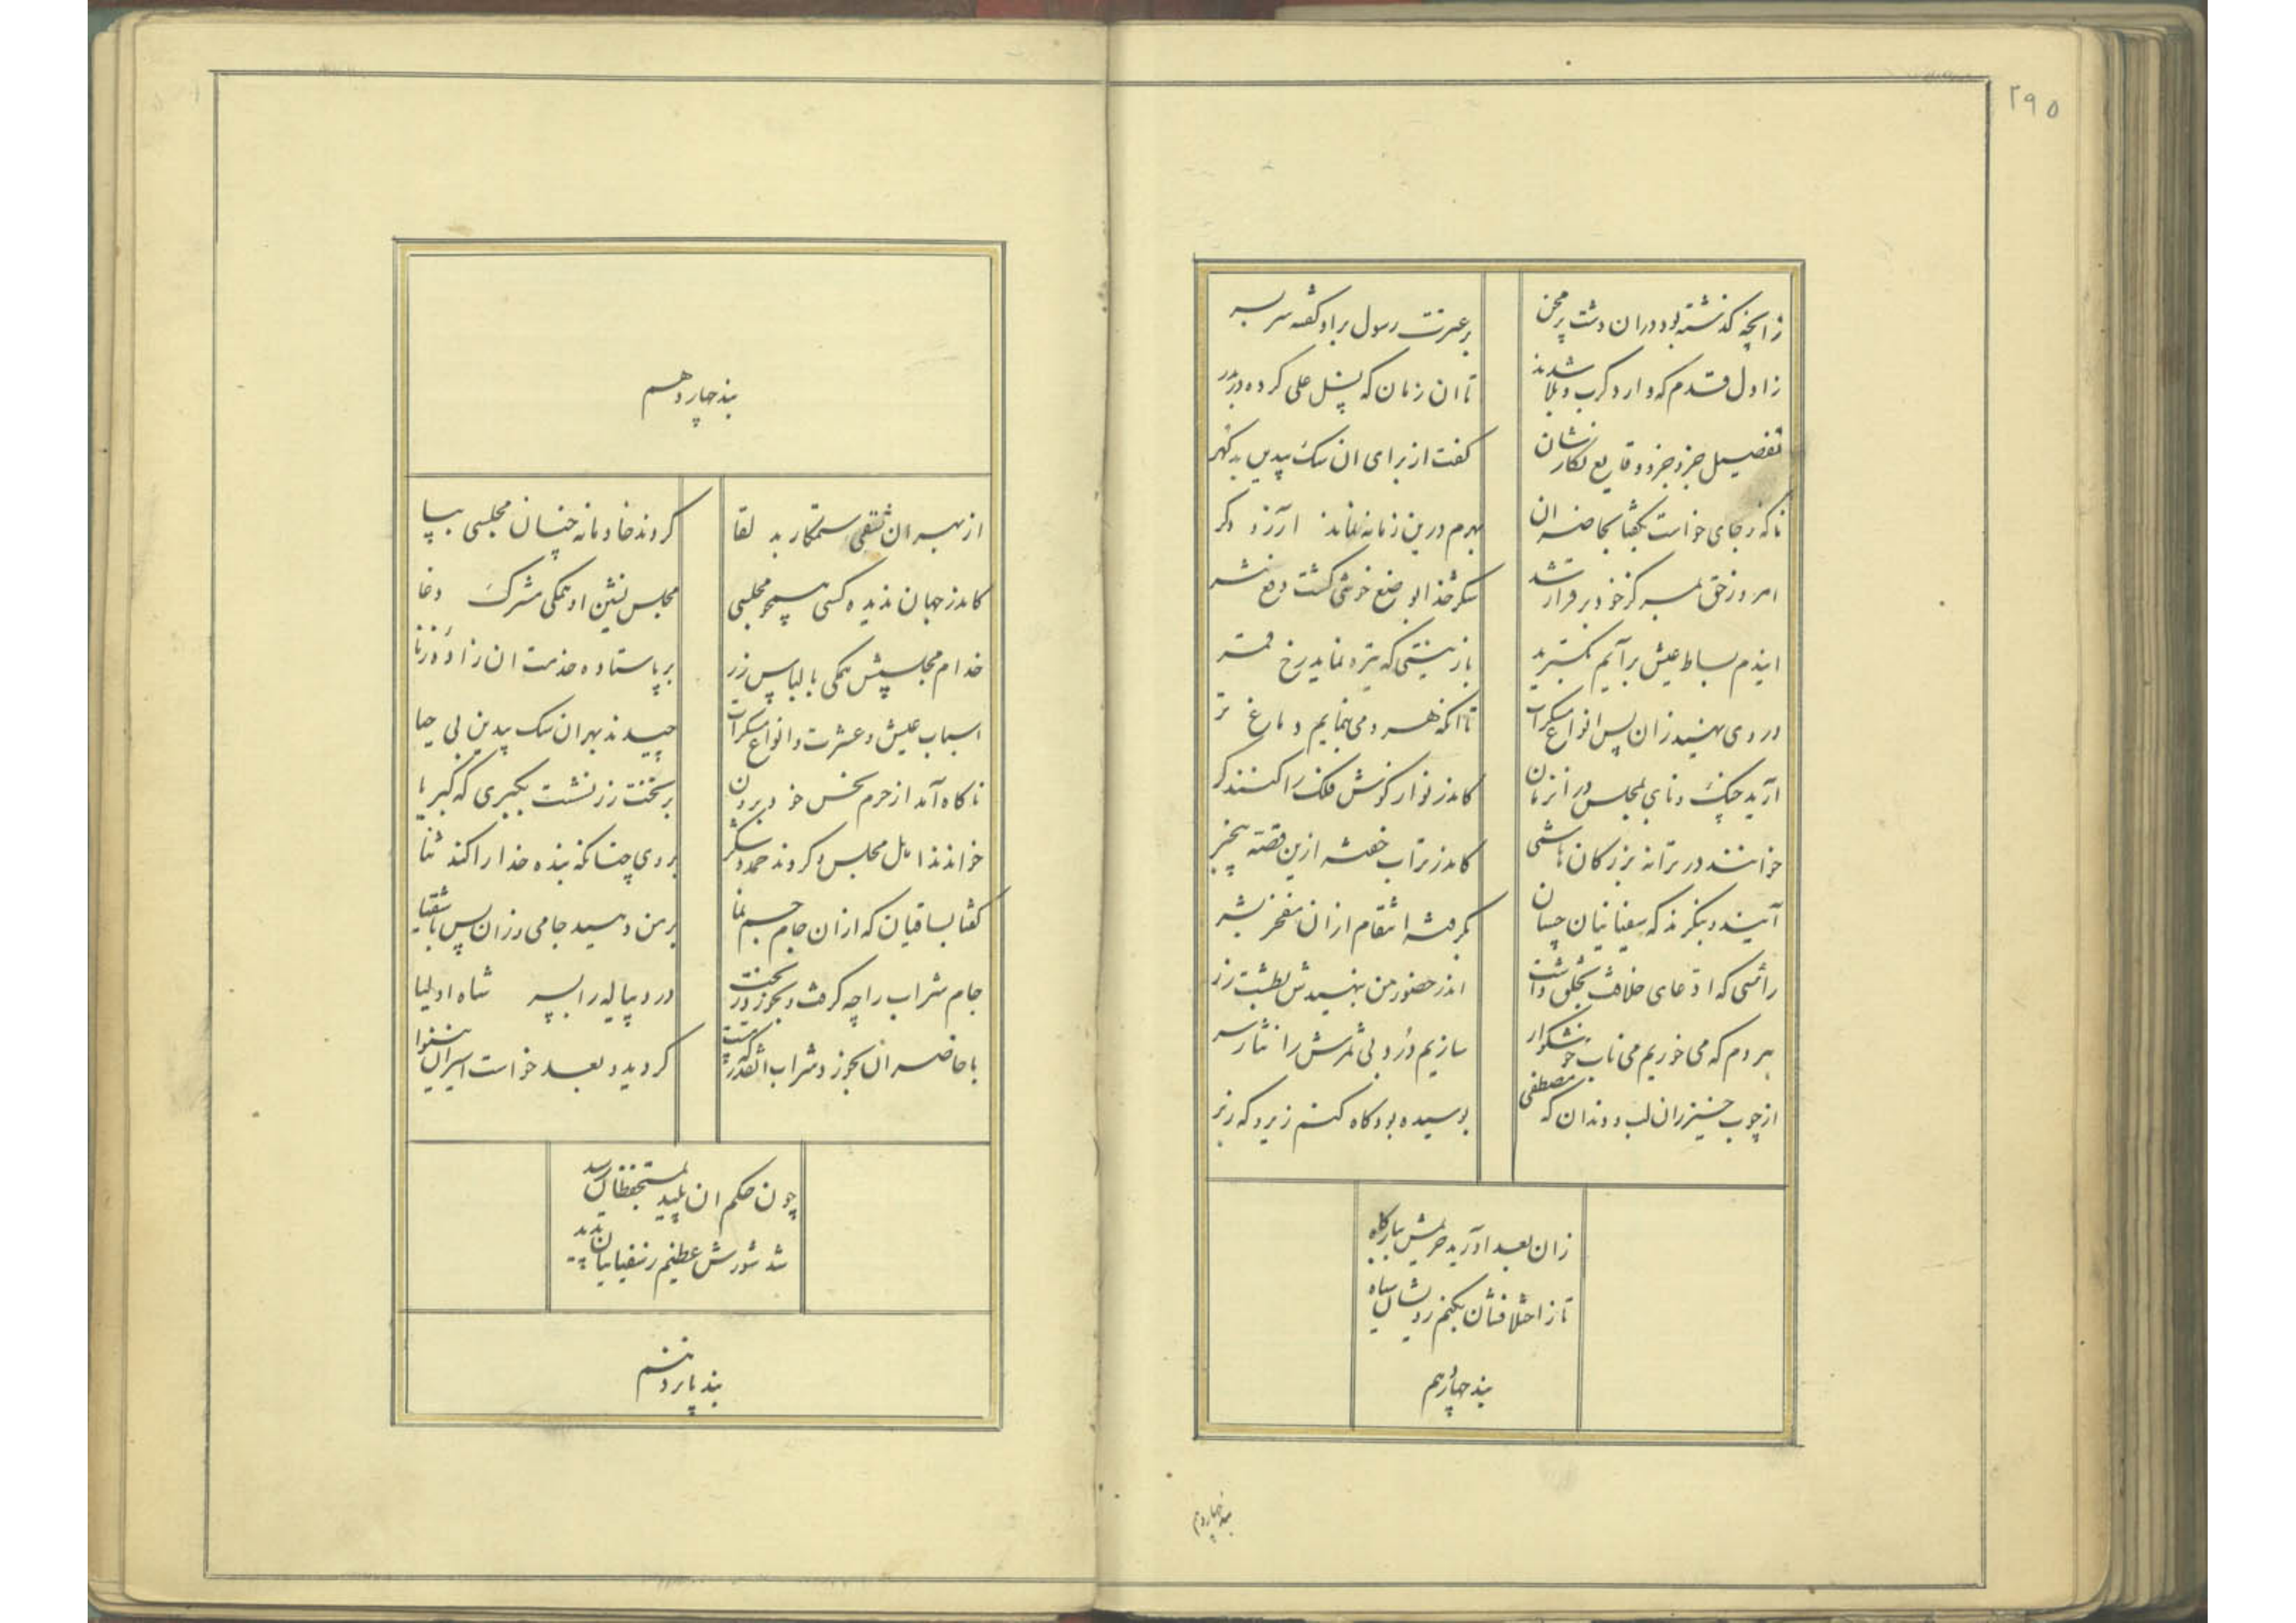 ۲۹۵
زانچه گذشته بود در ان دشت پر محن
بر عترت رسول براو گفته سر بسر
ز اول قدم که وارد کرب و بلا شدند
تا ان زمان که پشل علی کرده در بدر
تفصیل جزو جزو وقایع نکارشان
گفت از برای ان سک بیدین بد گهر
ناکه ز جای خواست بگفتا بحاضران
بهرم درین زمانه نماند ارزو دگر
امروز حق بمرکز خود بر قرار شد
شکر خدا بوضع خوشی گشت دفع شر
ایندم بساط عیش برایم بگسترید
با زینتی که تیره نماید رخ قمر
در وی نهید زان پس انواع مسکرات
تا انکه هر دمی بنمایم دماغ تر
ارید چنگ و نای بمجلس در انزمان
کاندر نوا ز گوش فلک را کنند کر
خوانند در ترانه بزرگان هاشمی
کاندر تراب خفته ازین قصه بیخبر
ایند و بنگرند که سفیانیان چسان
بگرفته انتقام از ان مفخر بشر
راسی که ادعای خلافت بخلق داشت
اندر حضور من بنهیدش بطشت زر
هر دم که می خوریم می ناب خوشگوار
سازیم دُرد بی ثمرش را نثار سر
از چوب خیزران لب و دندان که مصطفی
بوسیده بود گاه کنم زیر و گه زبر
زان بعد اورید حریمش ببارگاه
تا ز اختلافشان بکنم رویشان سیاه
بند چهاردهم
بند چهاردهم
بند چهاردهم
از بهر ان شقی ستمکار بد لقا
کردند خادمانه چنان مجلسی بپا
کاندر جهان ندیده کسی همچو مجلسی
مجلس نشین او همگی مشرک دغا
خدام مجلسش همگی با لباس زر
بر پا ستاده خدمت ان زاده زنا
اسباب عیش و عشرت و انواع مسکرات
چیدند بهر ان سک بیدین بی حیا
ناکاه آمد از حرم نحس خود برون
بر تخت زر نشست بکبری که کبریا
خواندند اهل مجلس و کردند حمد و شکر
بر وی چنانکه بنده خدا را کند ثنا
گفتا بساقیان که از ان جام جم نما
بر من دهید جامی و زان پس باشقیا
جام شراب را چه گرفت و بخورد و ریخت
درد پیاله را بسر شاه اولیا
با حاضران بخورد شراب انقدر که مست
گردید و بعد خواست اسیران بینوا
چون حکم ان پلید بمستحفظان رسید
شد شورش عظیم ز سفیانیان پدید
بند پانزدهم